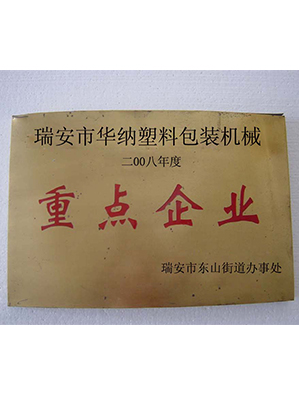 瑞安市华纳塑料包装机械
二00八年度
重点企业
瑞安市东山街道办事处